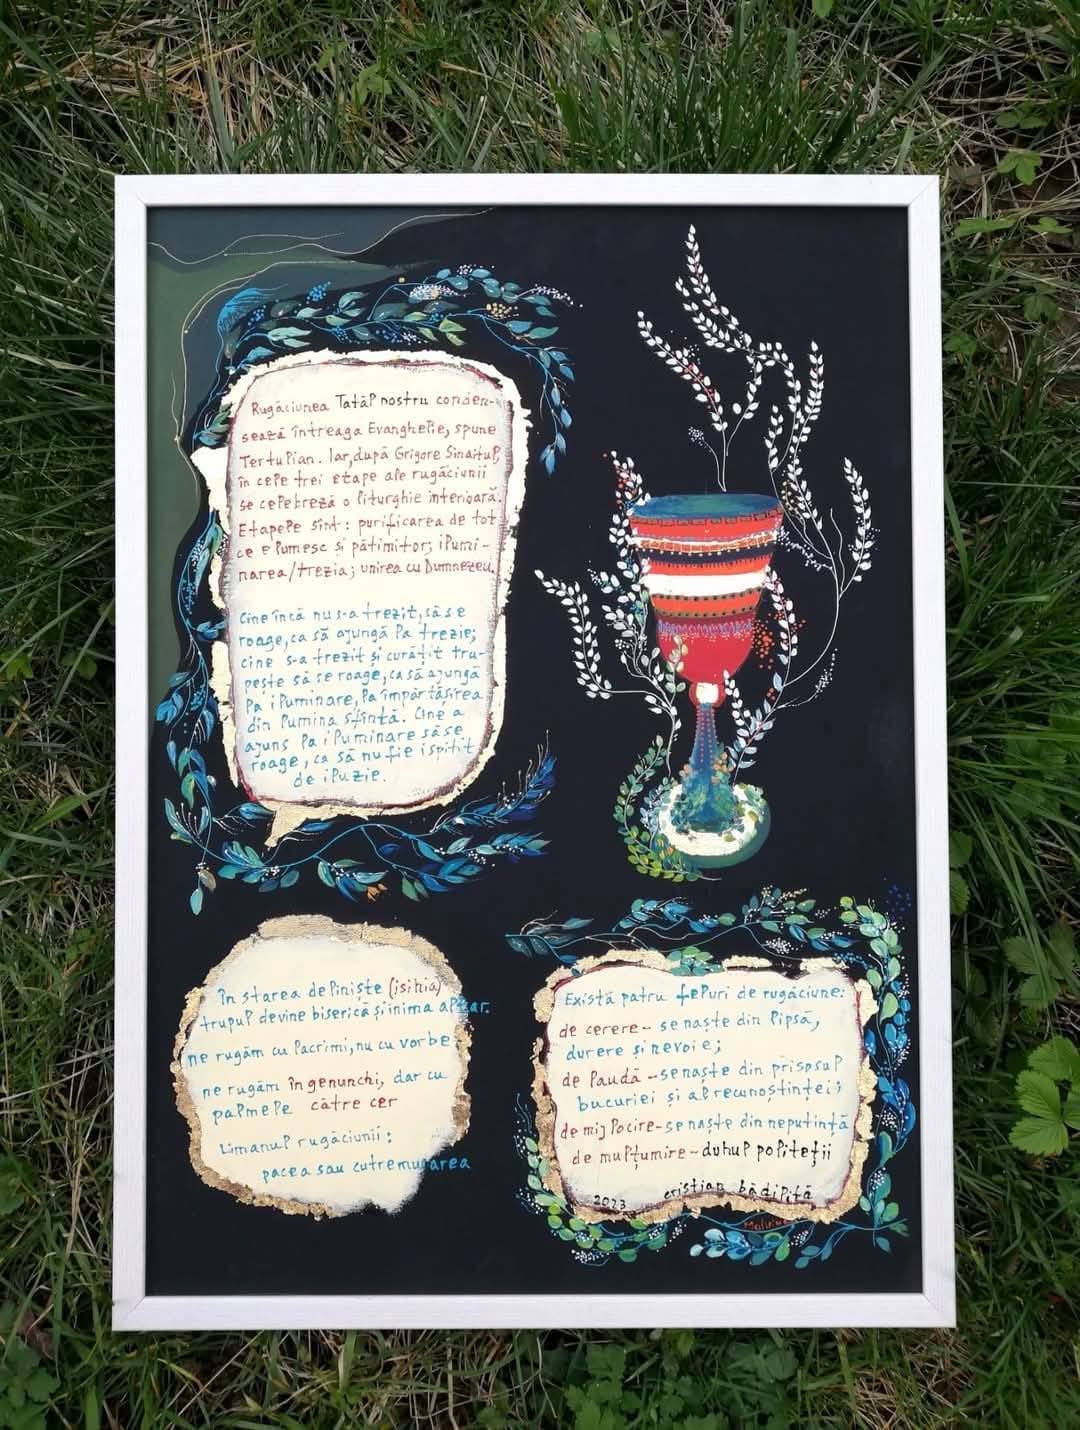 Rugăciunea Tatăl nostru conden-
sează întreaga Evanghelie, spune
Tertulian. Iar, după Grigore Sinaitul,
în cele trei etape ale rugăciunii
se celebrează o liturghie interioară.
Etapele sînt: purificarea de tot
ce e lumesc și pătimitor; ilumi-
narea/trezia; unirea cu Dumnezeu.
Cine încă nu s-a trezit, să se
roage, ca să ajungă la trezie;
cine s-a trezit și curățit tru-
pește să se roage, ca să ajungă
la iluminare, la împărtășirea
din lumina sfîntă. Cine a
ajuns la iluminare să se
roage, ca să nu fie ispitit
de iluzie.
În starea de liniște (isihia)
trupul devine biserică și inima altar.
ne rugăm cu lacrimi, nu cu vorbe
ne rugăm în genunchi, dar cu
palmele către cer
Limanul rugăciunii:
pacea sau cutremurarea
Există patru feluri de rugăciune:
de cerere - se naște din lipsă,
durere și nevoie;
de laudă - se naște din prisosul
bucuriei și al recunoștinței;
de mijlocire - se naște din neputință
de mulțumire - duhul politeții
2023 cristian bădiliță